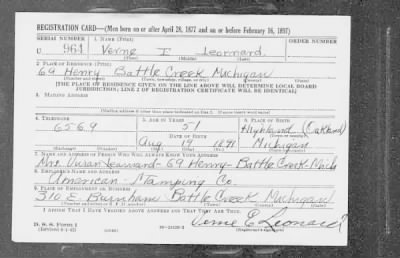 REGISTRATION CARD—(Men born on or after April 28, 1877 and on or before February 16, 1897)
SERIAL NUMBER 1. NAME (Print)
U 961 Verne Leonard
(First) (Middle) (Last)
2. PLACE OF RESIDENCE (Print)
69 Henry Battle Creek Michigan
(Number and street) (Town, township, village, or city) (County) (State)
[THE PLACE OF RESIDENCE GIVEN ON THE LINE ABOVE WILL DETERMINE LOCAL BOARD
JURISDICTION; LINE 2 OF REGISTRATION CERTIFICATE WILL BE IDENTICAL]
3. MAILING ADDRESS
[Mailing address if other than place indicated on line 2. If same insert word same]
4. TELEPHONE 5. AGE IN YEARS 6. PLACE OF BIRTH
6569 51 Highland (Oakland)
DATE OF BIRTH (Town or county)
Aug 19 Michigan
(Mo.) (Day) (Yr.) (State or country)
7. NAME AND ADDRESS OF PERSON WHO WILL ALWAYS KNOW YOUR ADDRESS
Mrs 69 Henry - Battle Creek Mich
8. EMPLOYER'S NAME AND ADDRESS
American Stamping Co.
9. PLACE OF EMPLOYMENT OR BUSINESS
310 E. Burnham Battle Creek Michigan
(Number and street or R. F. D. number) (Town) (County) (State)
I AFFIRM THAT I HAVE VERIFIED ABOVE ANSWERS AND THAT THEY ARE TRUE.
D. S. S. Form 1
(Revised 4-1-42) (over)
Verne E Leonard
(Registrant's signature)